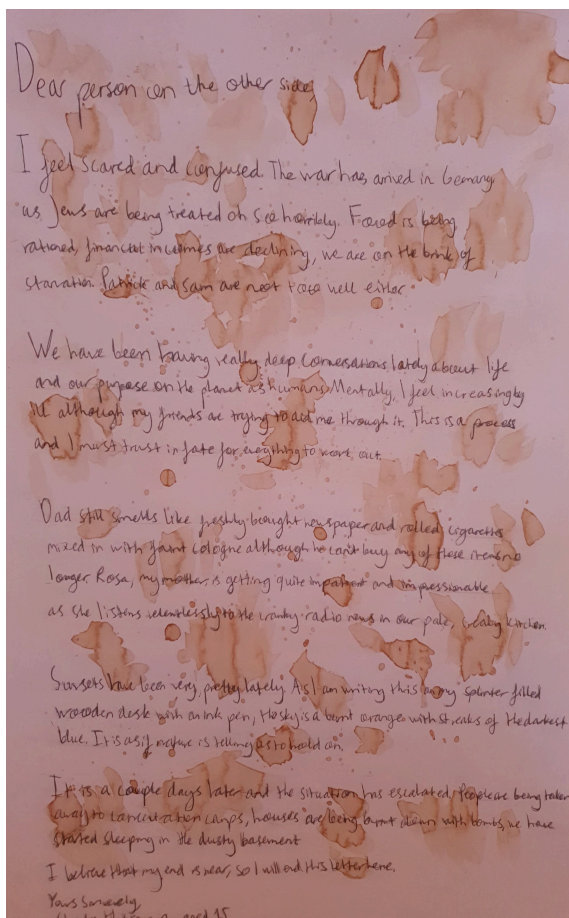 Dear person on the other side
I feel scared and confused. The war has arived in Germany
as Jews are being treated oh so horribly. Food is being
rationed, financial incomes are declining, we are on the brink of
starvation. Patrick and Sam are not too well either
We have been having really deep conversations lately about life
and our purpose on the planet as humans. Mentally, I feel increasingly
ill although my friends are trying to aid me through it. This is a process
and I must trust in fate for everything to work out
Dad still smells like freshly bought newspaper and rolled cigarettes
mixed in with faint cologne although he can't buy any of these items no
longer. Rosa, my mother is getting quite impatient and impressionable
as she listens relentlessly to the cranky radio news in our pale, kitchen.
Sunsets have been very, pretty lately. As I am writing this on my splinter filled
wooden desk with an ink pen, the sky is a burnt orange with streaks of the darkest
blue. It is as if nature is telling us to hold on.
It is a couple days later and the situation has escalated, people are being taken
away to concentration camps, houses are being burnt down with bombs, we have
started sleeping in the dusty basement
I believe that my end is near, so I will end this letter here.
Yours Sincerely
aged 15